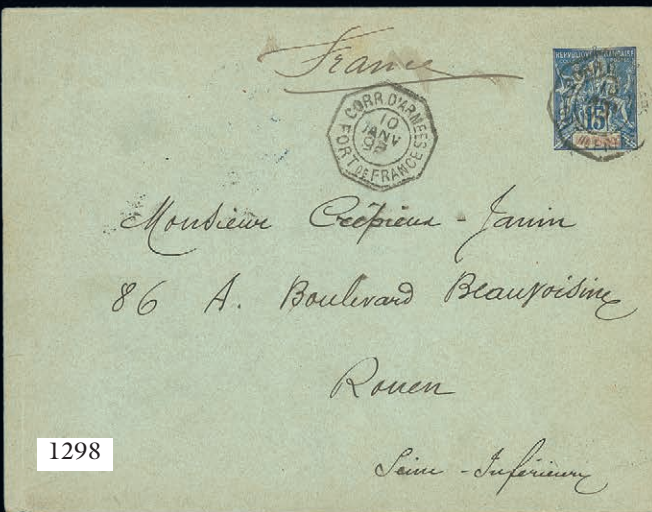 France
CORR. D'ARMÉES
10
JANV
FORT DE FRANCE
15
Monsieur Crépieux-Jamin
86 A. Boulevard Beauvoisine
Rouen
Seine-Inférieure
1298